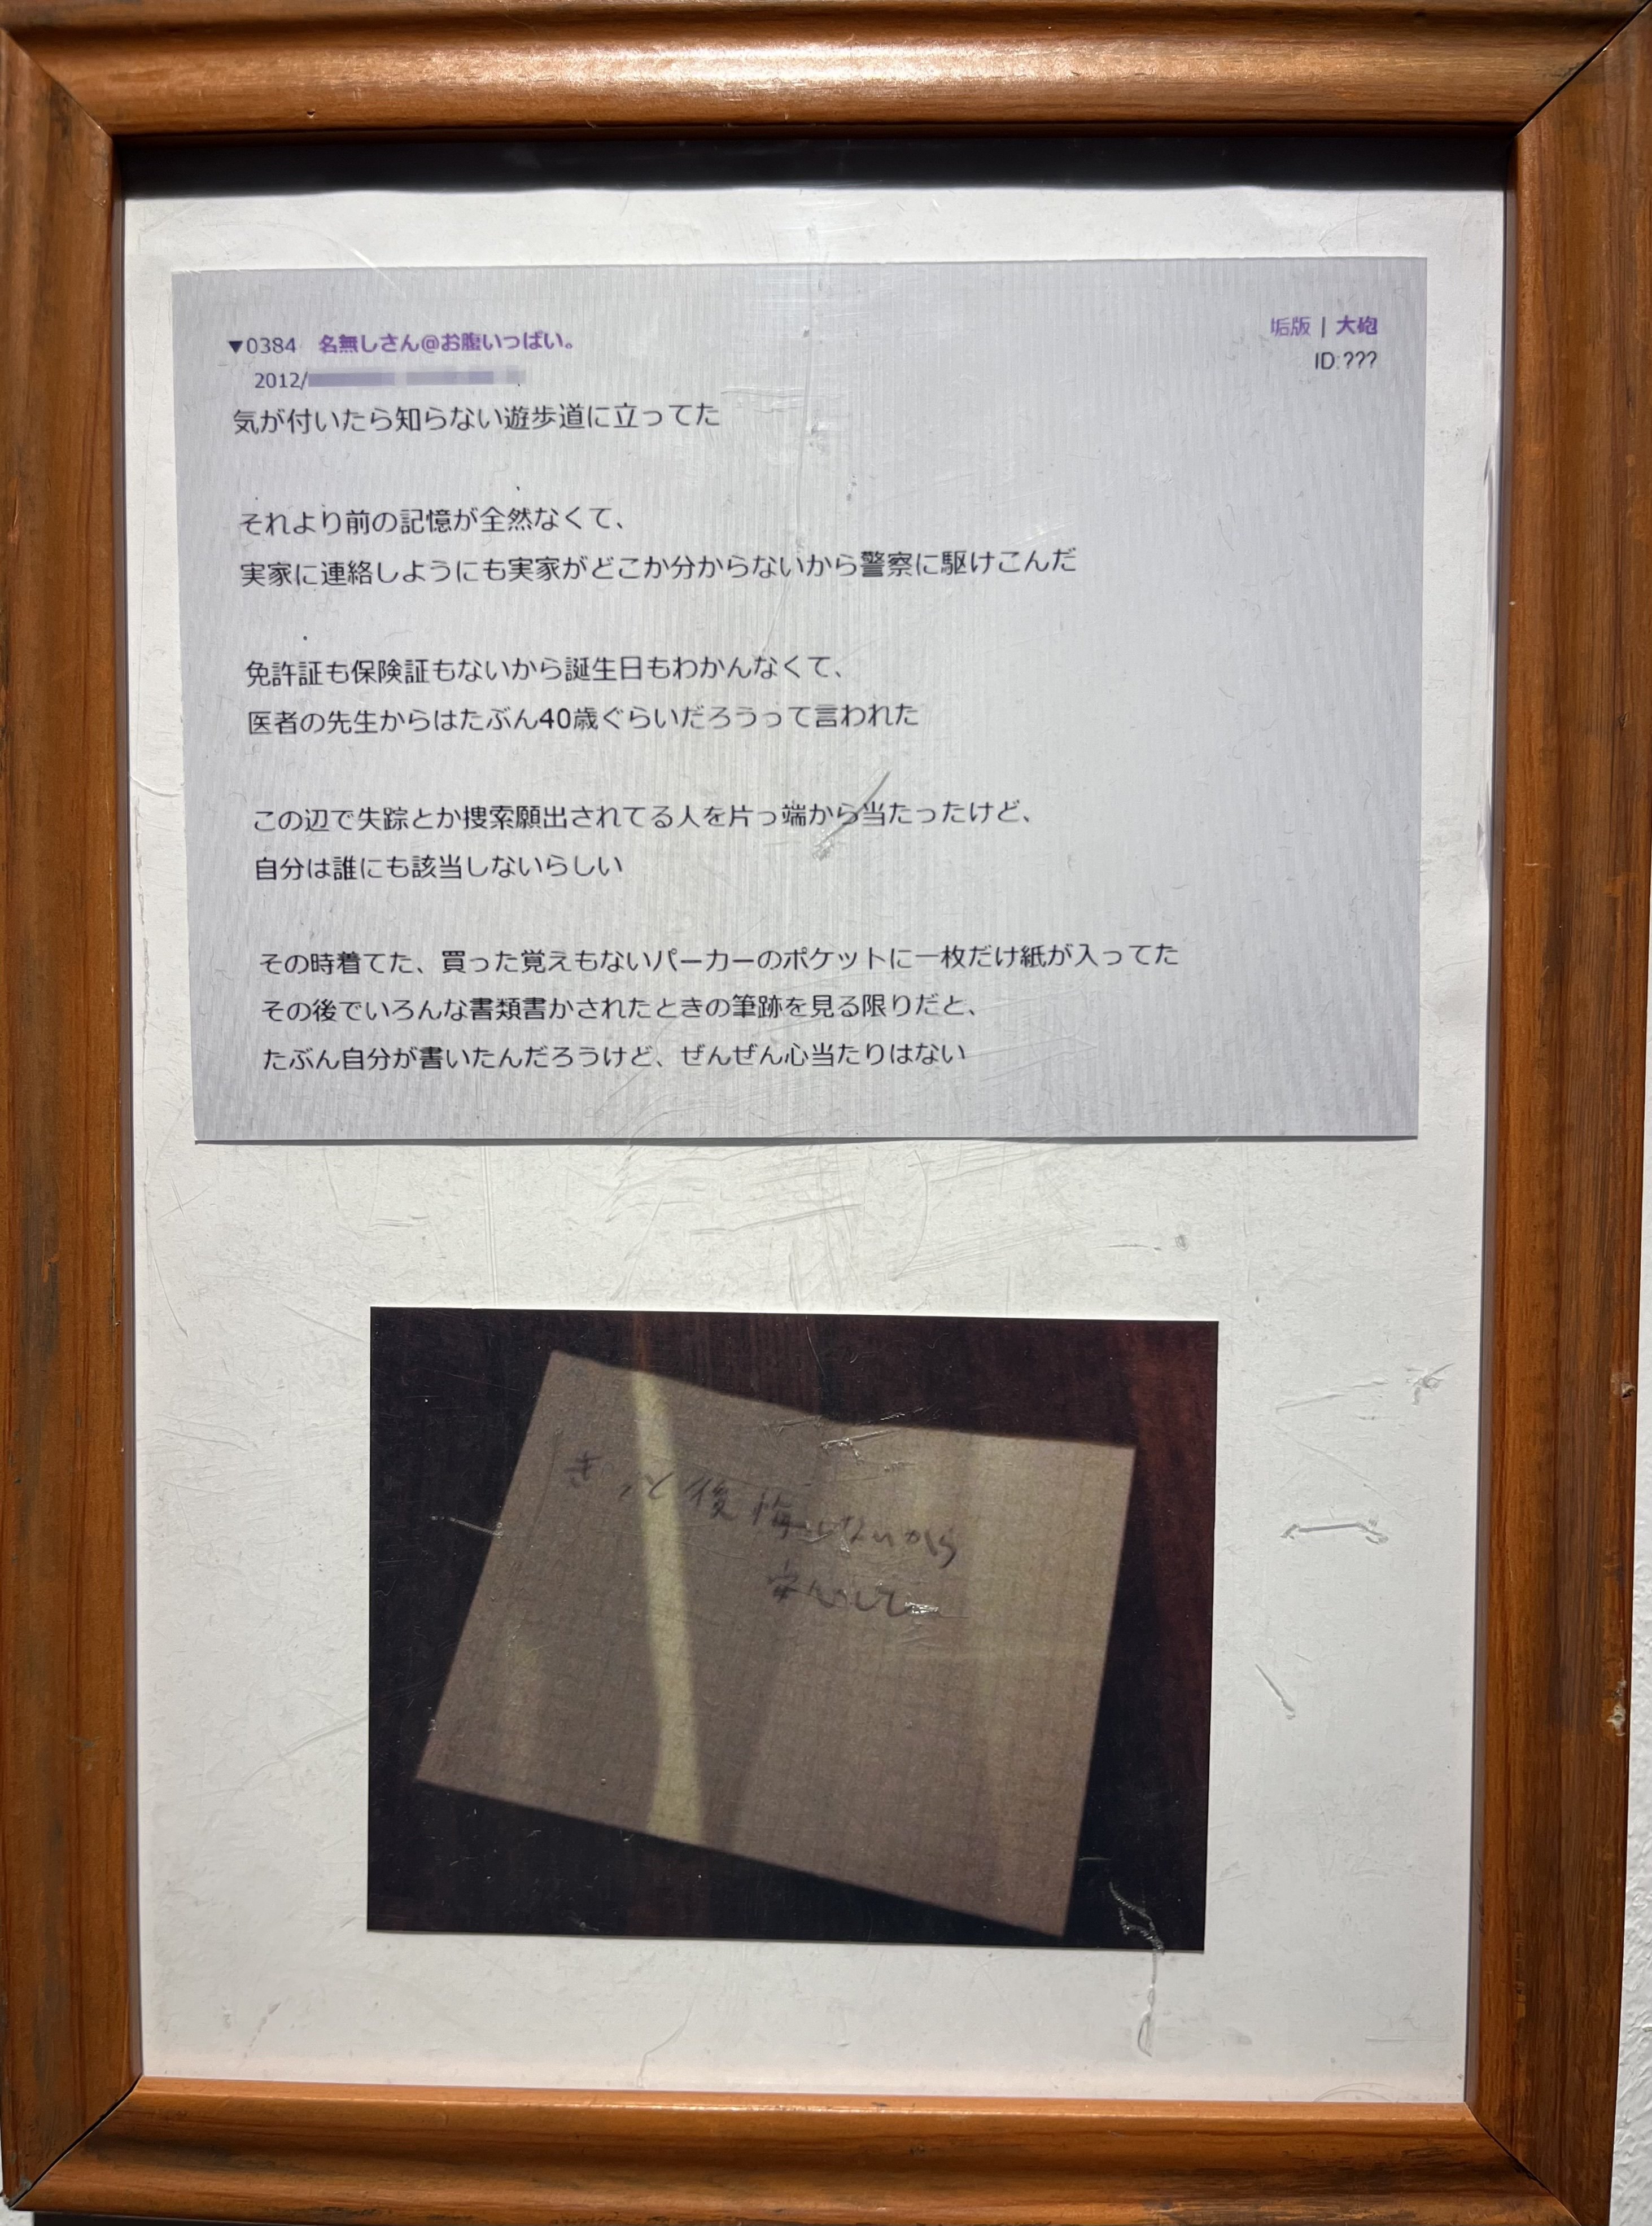 ▼0384 名無しさん@お腹いっぱい。
垢版 | 大砲
2012/
ID:???
気が付いたら知らない遊歩道に立ってた
それより前の記憶が全然なくて、
実家に連絡しようにも実家がどこか分からないから警察に駆けこんだ
免許証も保険証もないから誕生日もわかんなくて、
医者の先生からはたぶん40歳ぐらいだろうって言われた
この辺で失踪とか捜索願出されてる人を片っ端から当たったけど、
自分は誰にも該当しないらしい
その時着てた、買った覚えもないパーカーのポケットに一枚だけ紙が入ってた
その後でいろんな書類書かされたときの筆跡を見る限りだと、
たぶん自分が書いたんだろうけど、ぜんぜん心当たりはない
きっと後悔しないから
安心して